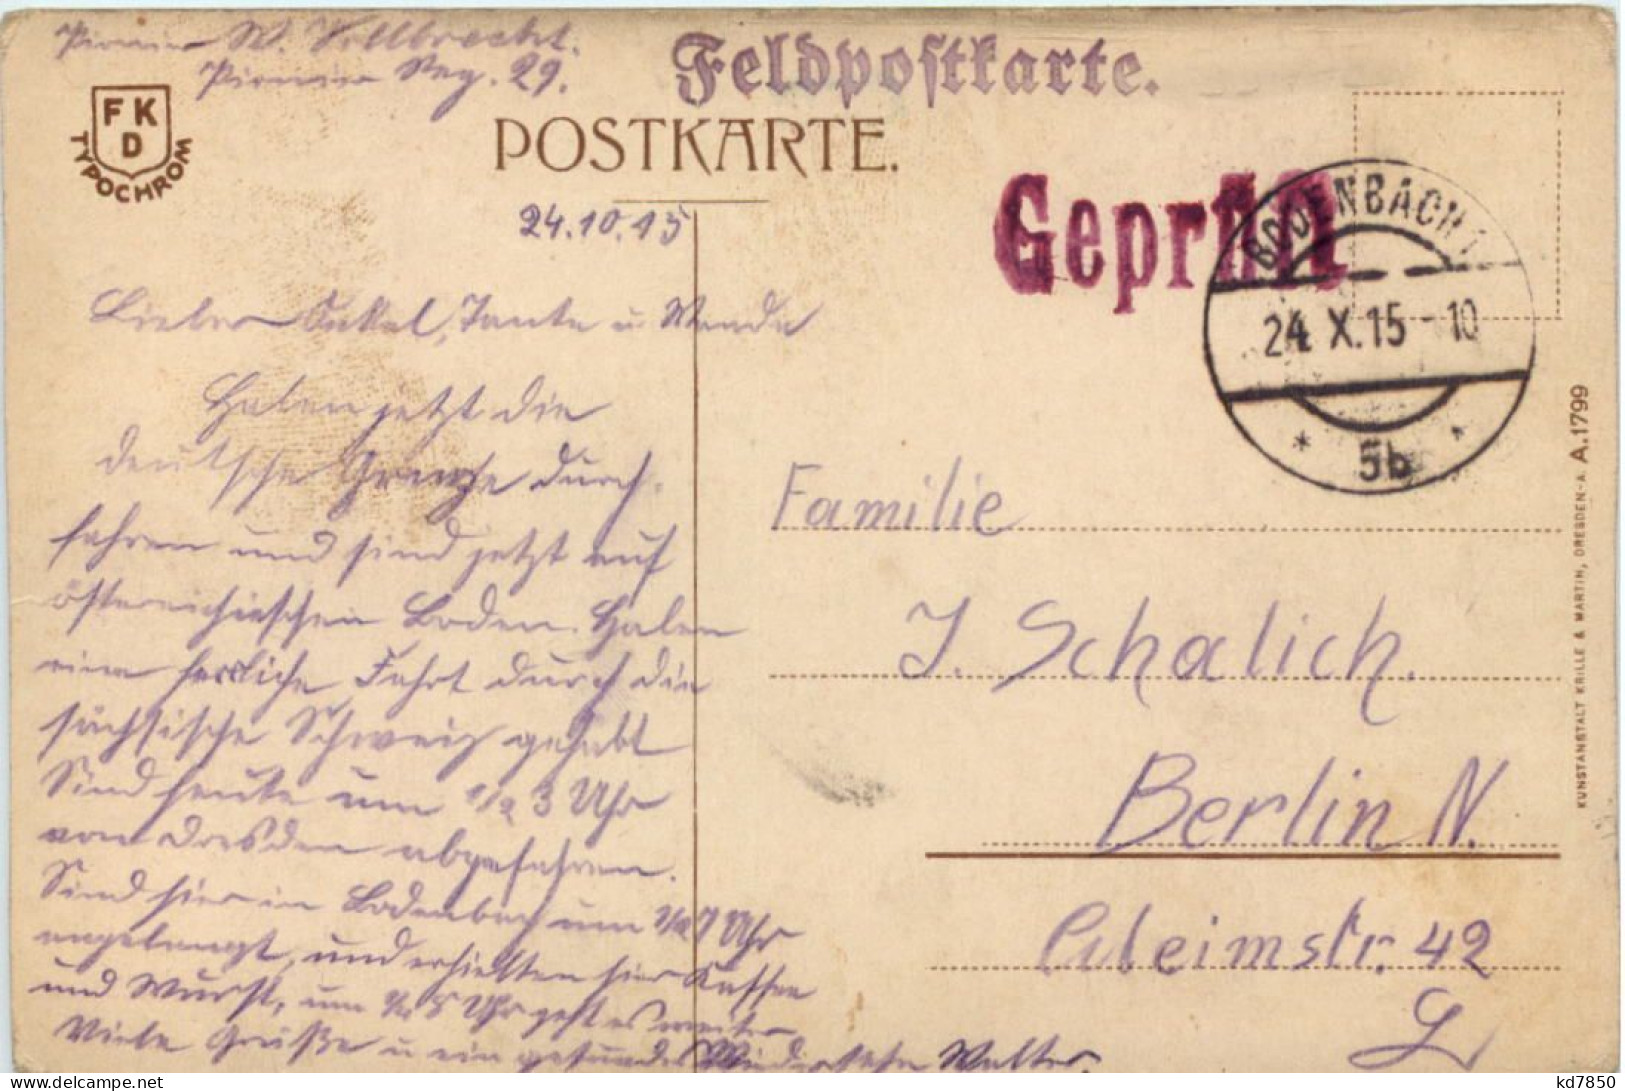 Pionier W. Vollbrecht.
Pionier Reg. 29.
Feldpostkarte.
FKD
TYPOCHROM
POSTKARTE.
Geprüft
BODENBACH 1
24 X.15 - 10
* 5b *
24.10.15
Lieber Onkel, Tante u. Wanda
Haben jetzt die
deutsche Grenze durch-
fahren und sind jetzt auf
österreichischen Boden. Haben
eine herrliche Fahrt durch die
sächsische Schweiz gehabt
Sind heute um 1/2 3 Uhr
von Dresden abgefahren.
Sind hier in Bodenbach um 1/2 7 Uhr
angelangt, und erhielten hier Kaffee
und Wurst, um 1/2 8 Uhr geht es weiter
Viele Grüße u ein gesundes Wiedersehn Walter.
Familie
J. Schalich.
Berlin N.
Gleimstr. 42
KUNSTANSTALT KRILLE & MARTIN, DRESDEN-A. A.1799
kd7850